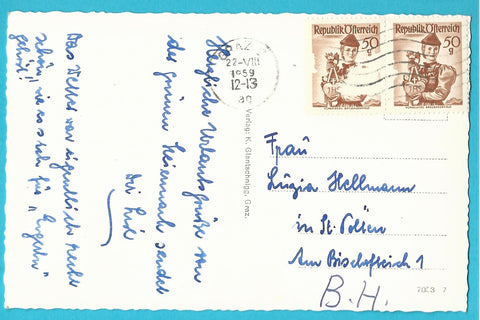 Republik Österreich
50
g
Republik Österreich
50
g
GRAZ
22-VIII
1959
12-13
Herzliche Urlaubsgrüße von
der grünen Steiermark sendet
Dir
Das Wetter war eigentlich recht
schön, wie es sich für "Engerln"
gehört!
Verlag: K. Glantschnigg, Graz.
Frau
Luzia Hellmann
in St. Pölten
Am Bischofteich 1
B.H.